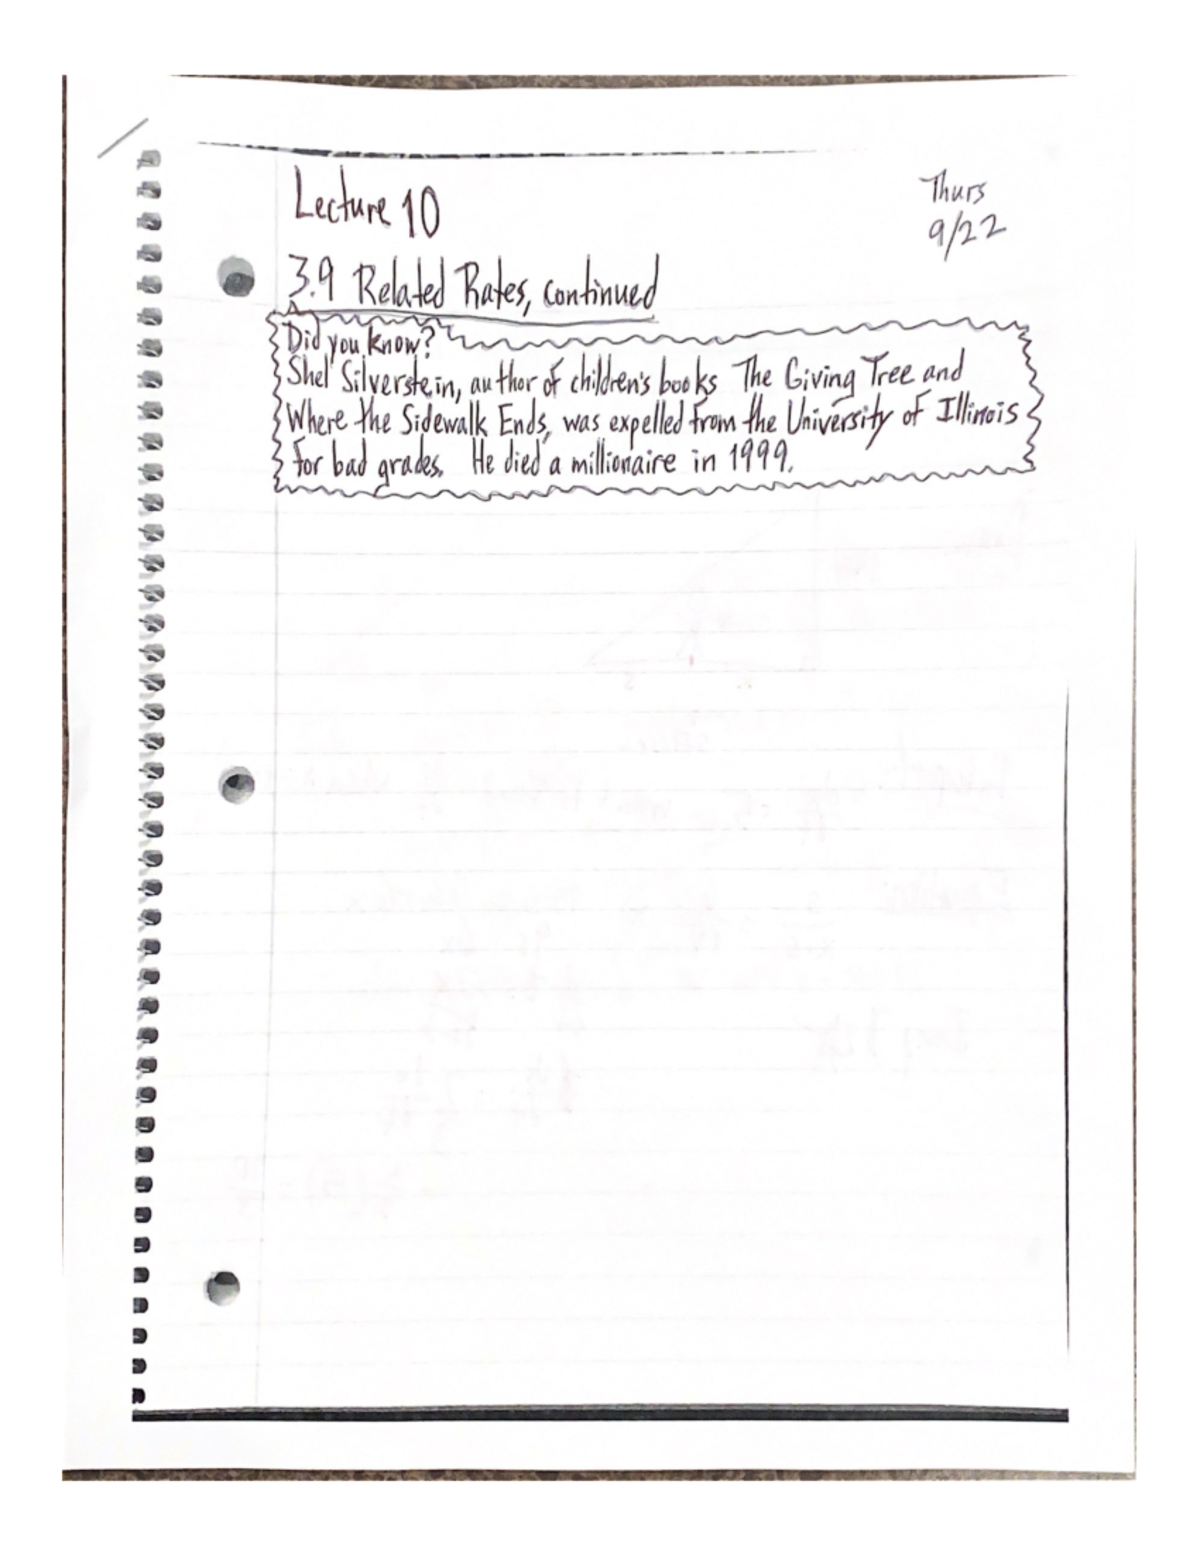 Lecture 10
Thurs
9/22
3.9 Related Rates, continued
Did you know?
Shel Silverstein, author of children's books The Giving Tree and
Where the Sidewalk Ends, was expelled from the University of Illinois
for bad grades. He died a millionaire in 1999.